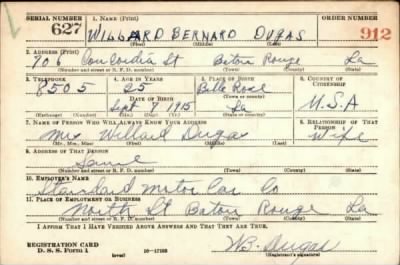 SERIAL NUMBER 1. NAME (Print) ORDER NUMBER
627 WILLARD BERNARD DUGAS 912
(First) (Middle) (Last)
2. ADDRESS (Print)
706 Concordia St Baton Rouge La
(Number and street or R. F. D. number) (Town) (County) (State)
3. TELEPHONE 4. AGE IN YEARS 5. PLACE OF BIRTH 6. COUNTRY OF CITIZENSHIP
8505 25 Belle Rose
DATE OF BIRTH (Town or county)
Sept 1915 La U.S.A
(Exchange) (Number) (Mo.) (Day) (Yr.) (State or country)
7. NAME OF PERSON WHO WILL ALWAYS KNOW YOUR ADDRESS 8. RELATIONSHIP OF THAT PERSON
Mrs Willard Dugas Wife
(Mr., Mrs., Miss) (First) (Middle) (Last)
9. ADDRESS OF THAT PERSON
Same
(Number and street or R. F. D. number) (Town) (County) (State)
10. EMPLOYER'S NAME
Standard Motor Car Co
11. PLACE OF EMPLOYMENT OR BUSINESS
North St Baton Rouge La
(Number and street or R. F. D. number) (Town) (County) (State)
I AFFIRM THAT I HAVE VERIFIED ABOVE ANSWERS AND THAT THEY ARE TRUE.
REGISTRATION CARD
D. S. S. Form 1 (over) W.B. Dugas
(Registrant's signature)